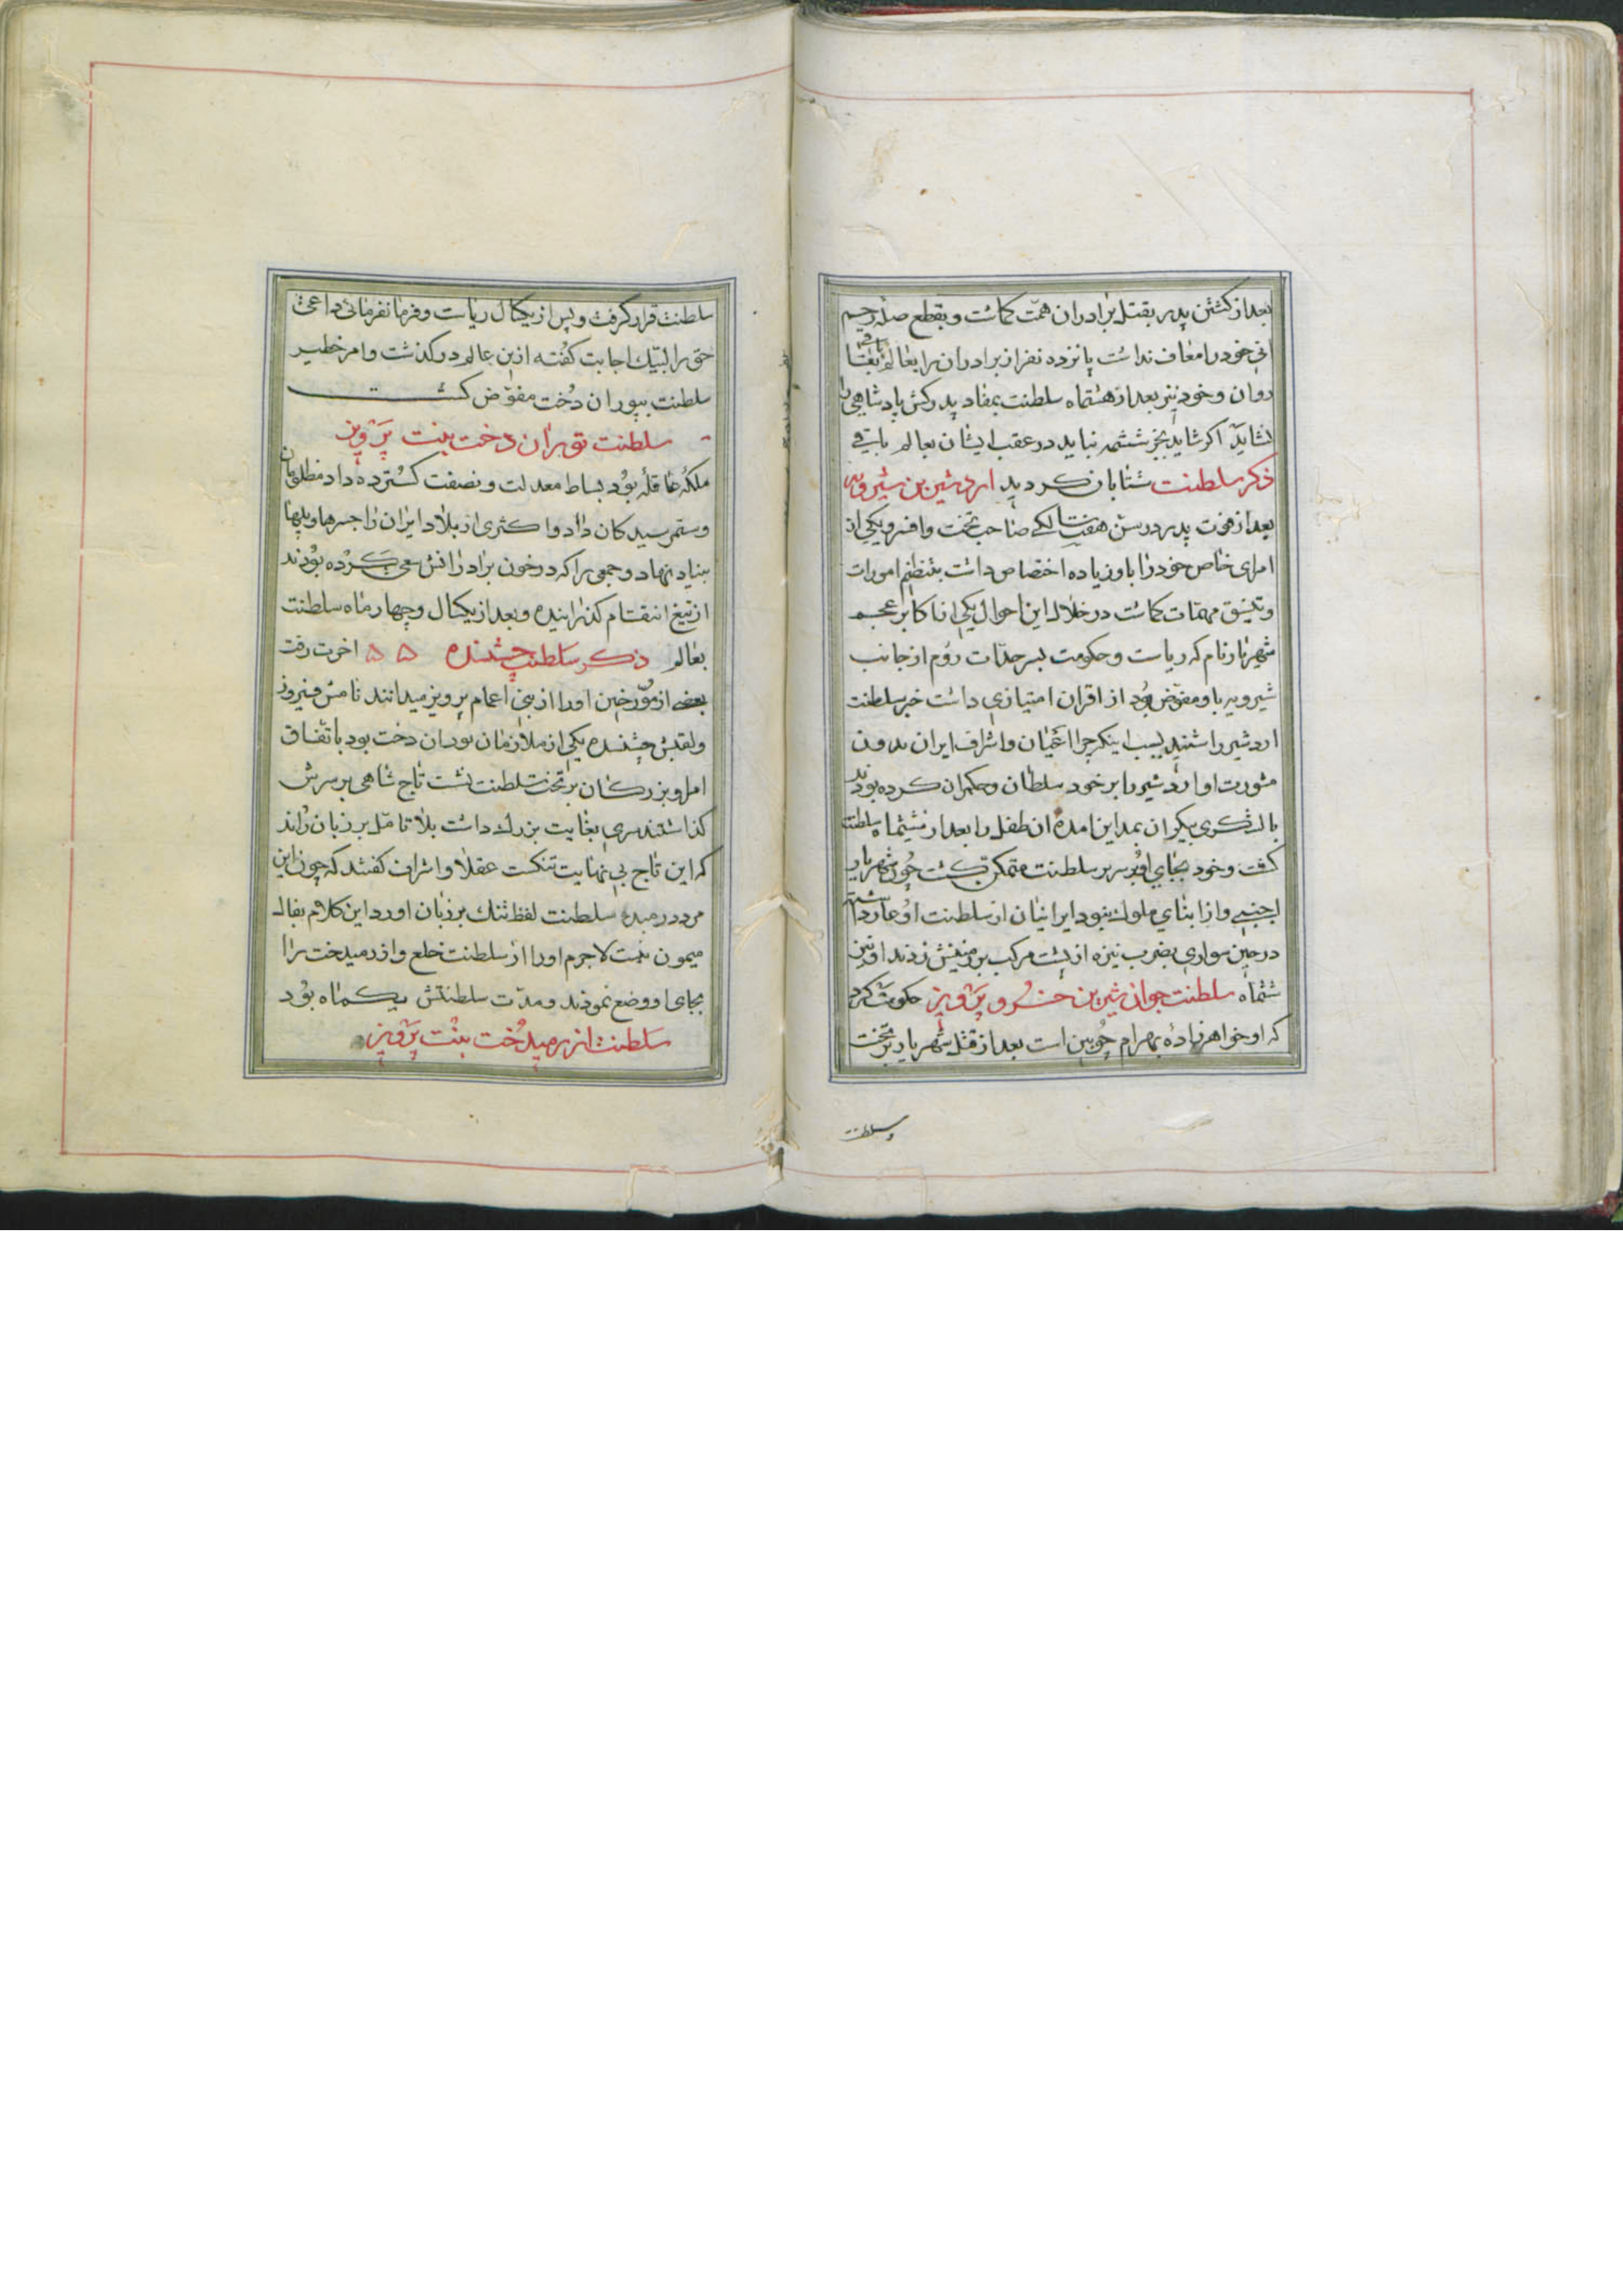 بعد از کشتن پدر بقتل برادران همت کماشت و بقطع صله رحیم
خود را معاف نداشت پانزده نفر از برادران را بعالم بقا
روان و خود نیز بعد از هشتماه سلطنت بمفاد پدر کش پادشاهی را
نشاید اکر شاید بجز ششمه نباید در عقب ایشان بعالم باقی
ذکر سلطنت شتابان کردید اردشیر بن شیرویه
بعد از فوت پدر در سن هفت سالکی صاحب تخت و افسر و یکی از
امرای خاص خود را با و زیاده اختصاص داشت بتنظیم امورات
و تنسیق مهمات کماشت در خلال این احوال یکی از اکابر عجم
شهریار نام که ریاست و حکومت سرحدات روم از جانب
شیرویه باو مفوض بود از اقران امتیازی داشت خبر سلطنت
اردشیر را شنید بسبب اینکه چرا اعیان و اشراف ایران بدون
مشورت او اردشیر را بر خود سلطان و حکمران کرده بودند
با لشکری بیکران بمداین امده ان طفل را بعد از ششماه سلطنت
کشت و خود بجای او بر سریر سلطنت متمکن کشت چون شهریار
اجنبی و از ابنای ملوک نبود ایرانیان از سلطنت او عار داشتند
در حین سواری بضرب نیزه از پشت مرکب بر زمینش زدند او نیز
ششماه سلطنت جوان شیر بن خسرو پرویز حکومت کرد
که او خواهر زاده بهرام چوبین است بعد از قتل شهریار بر تخت
و سلطنت
سلطنت قرار کرفت و پس از یکسال ریاست و فرمانفرمائی داعی
حق را لبیک اجابت کفته ازین عالم در کذشت و امر خطیر
سلطنت بپوران دخت مفوض کشت
سلطنت توران دخت بنت پرویز
ملکه عاقله بود بساط معدلت و نصفت کسترده داد مظلومان
و ستم رسیدکان داد و اکثری از بلاد ایران را جسرها و پلها
بنیاد نهاد و جمعی را که در خون برادرانش سعی کرده بودند
از تیغ انتقام کذرانیده و بعد از یکسال و چهار ماه سلطنت
بعالم ذکر سلطنت چشنده ۵ ۵ اخرت رفت
بعضی از مورخین او را از بنی اعمام پرویز میدانند نامش فیروز
و لقبش چشنده یکی از ملازمان بوران دخت بود باتفاق
امرا و بزرکان بر تخت سلطنت نشست تاج شاهی بر سرش
کذاشتند سری بغایت بزرک داشت بلا تامل بر زبان راند
که این تاج بی نهایت تنکست عقلا و اشراف کفتند که چون این
مرد در مبدء سلطنت لفظ تنک بر زبان اورد این کلام بفال
میمون نیست لاجرم او را از سلطنت خلع و ازرمیدخت را
بجای او وضع نمودند و مدت سلطنتش یکماه بود
سلطنت ازرمیدخت بنت پرویز